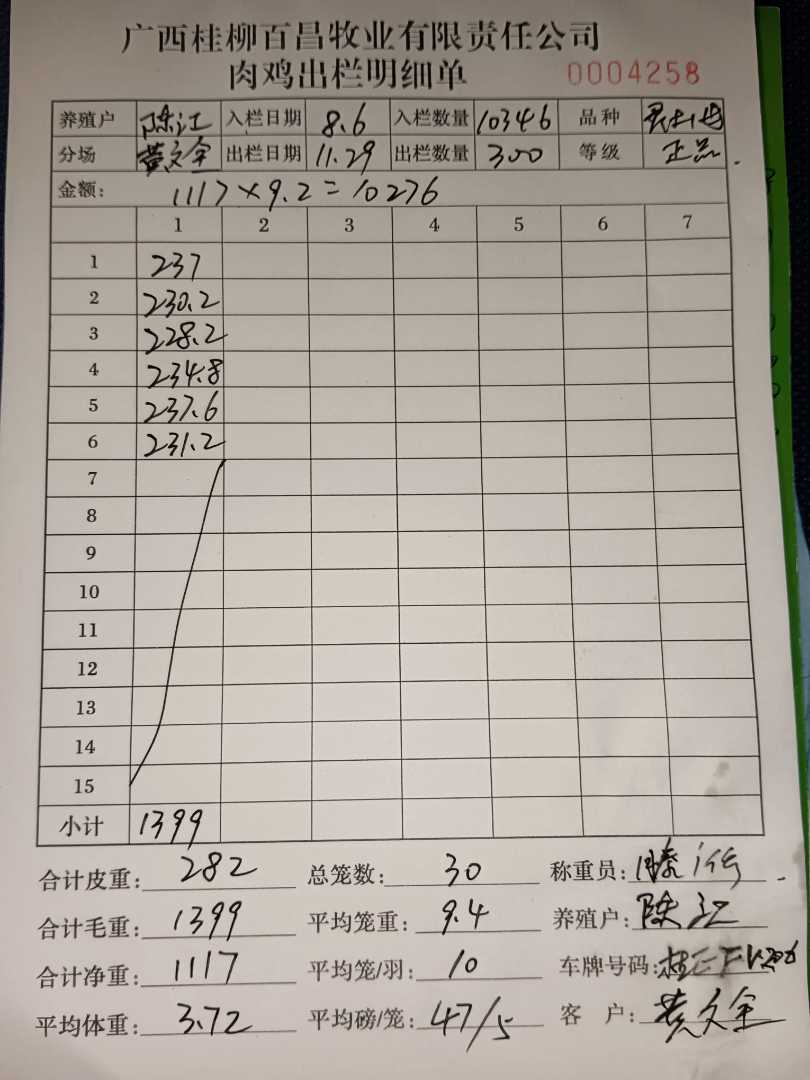 广西桂柳百昌牧业有限责任公司
肉鸡出栏明细单 0004258
养殖户 陈江 入栏日期 8.6 入栏数量 10346 品种
分场 黄文全 出栏日期 11.29 出栏数量 300 等级 正品
金额: 1117×9.2=10276
1 2 3 4 5 6 7
1 237
2 230.2
3 228.2
4 234.8
5 237.6
6 231.2
7
8
9
10
11
12
13
14
15
小计 1399
合计皮重: 282 总笼数: 30 称重员:
合计毛重: 1399 平均笼重: 9.4 养殖户: 陈江
合计净重: 1117 平均笼/羽: 10 车牌号码:
平均体重: 3.72 平均磅/笼: 47/5 客户: 黄文全